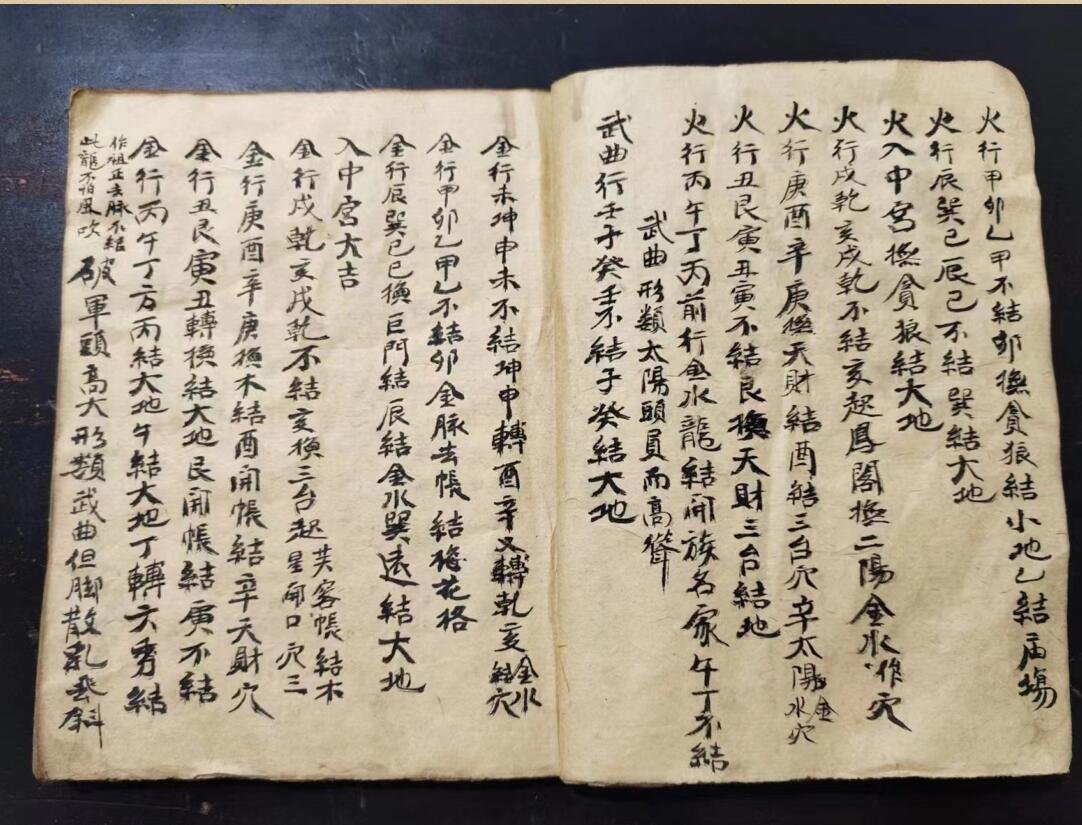 火行甲卯乙甲不結卯換貪狼結小地乙結庙場
火行辰巽巳辰巳不結巽結大地
火入中宮換貪狼結大地
火行戌乾亥戌乾不結亥起鳳閣換二陽金水作穴
火行庚酉辛庚換天財結酉結三台穴辛太陽金水穴
火行丑艮寅丑寅不結艮換天財三台結地
火行丙午丁丙前行金水龍結開族名家午丁不結
武曲形類太陽頭員而高聳
武曲行壬子癸壬不結子癸結大地
金行未坤申未不結坤申轉酉辛又轉乾亥金水結穴
金行甲卯乙甲乙不結卯金脉去帳結梅花格
金行辰巽巳巳換巨門結辰結金水巽遠結大地
入中宮大吉
金行戌乾亥戌乾不結亥換三台起芙容帳結木星開口穴三
金行庚酉辛庚換木結酉開帳結辛天財穴
金行丑艮寅丑轉換結大地艮開帳結寅不結
金行丙午丁方丙結大地午結大地丁轉六秀結
作祖正去脉不結
此龍不怕風吹
破軍頭高大形類武曲但脚散乱斜